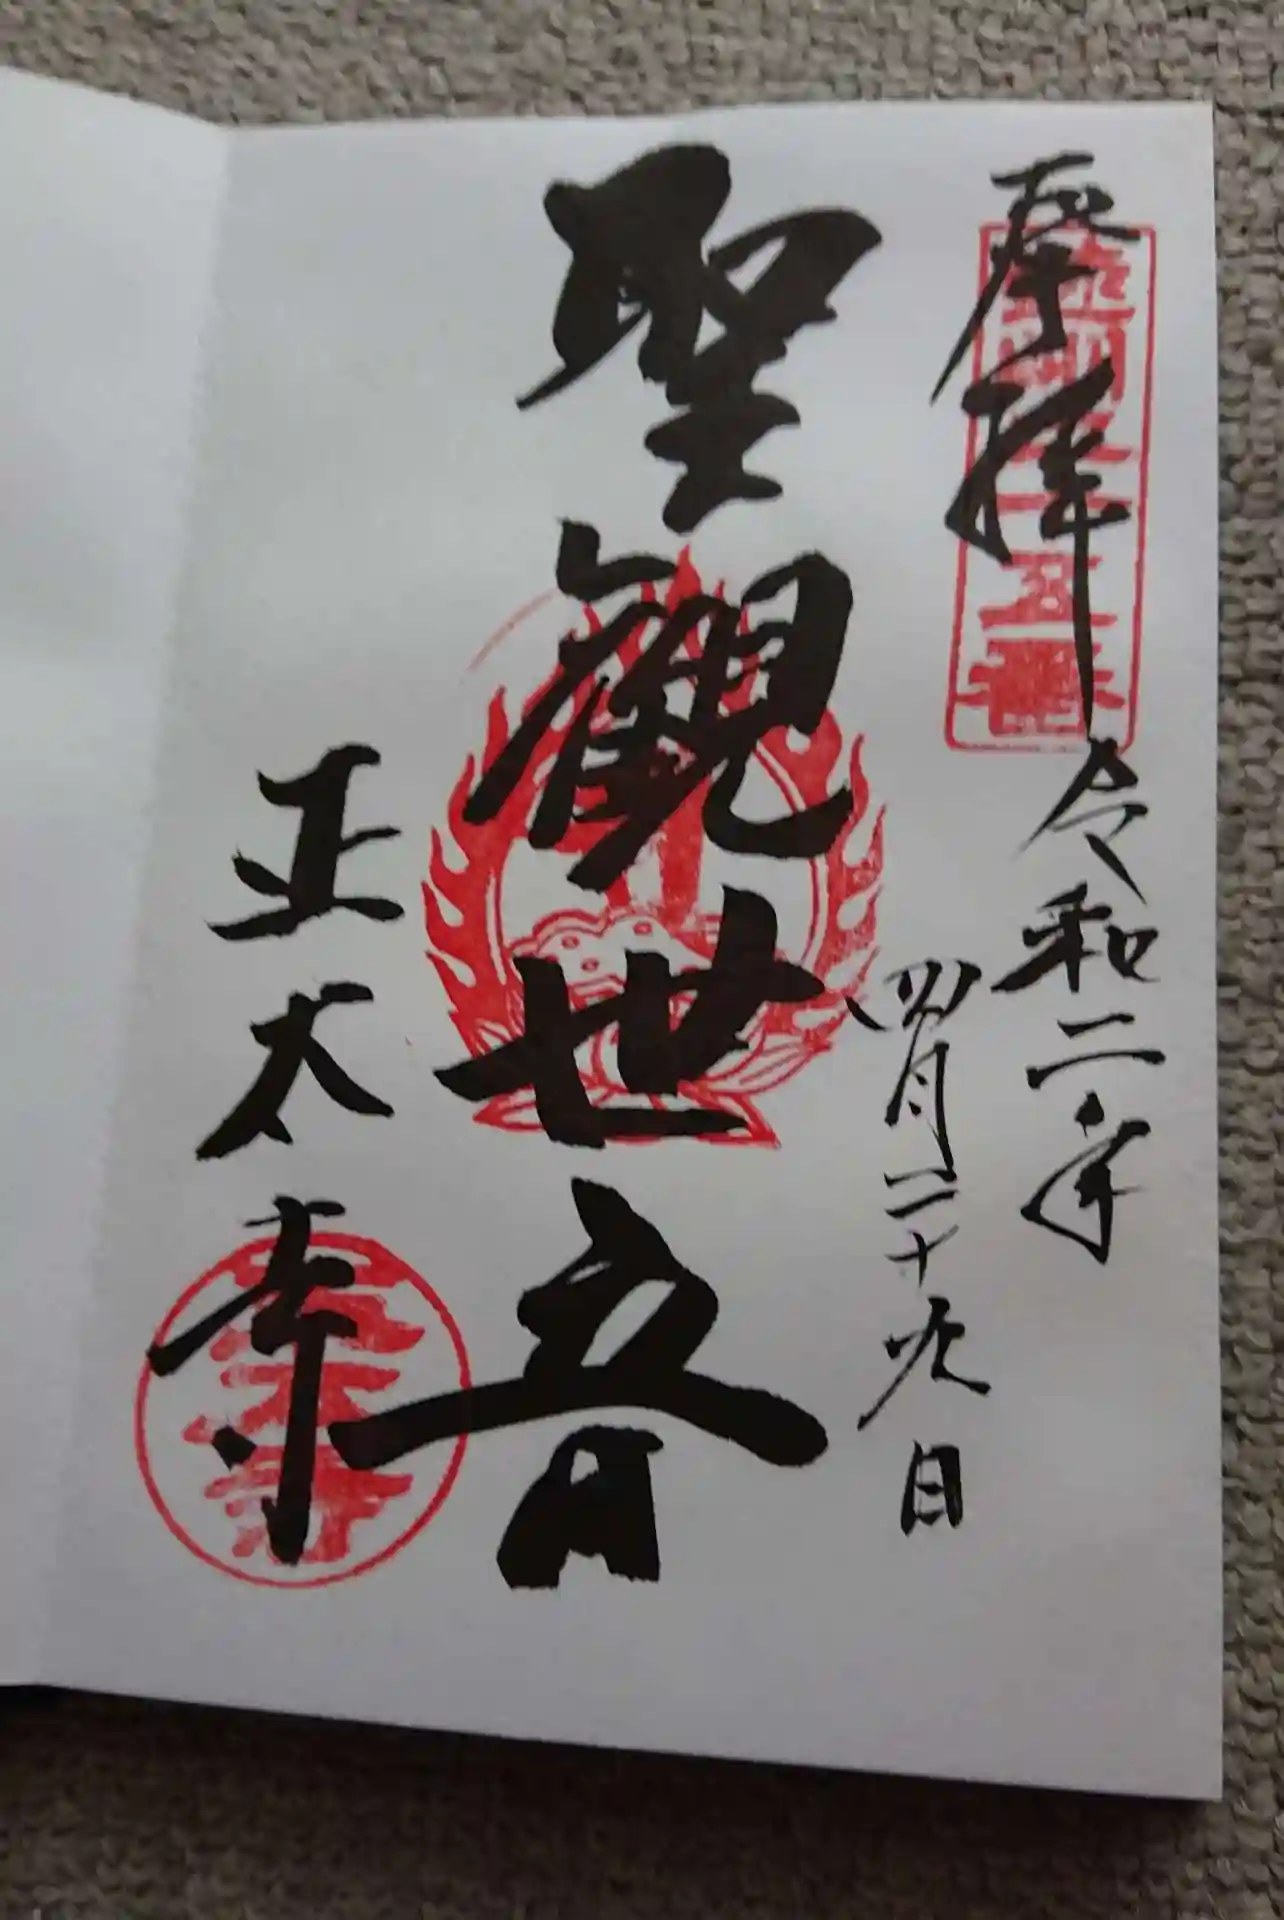 奉拝
令和二年
四月二十九日
聖觀世音
正太寺